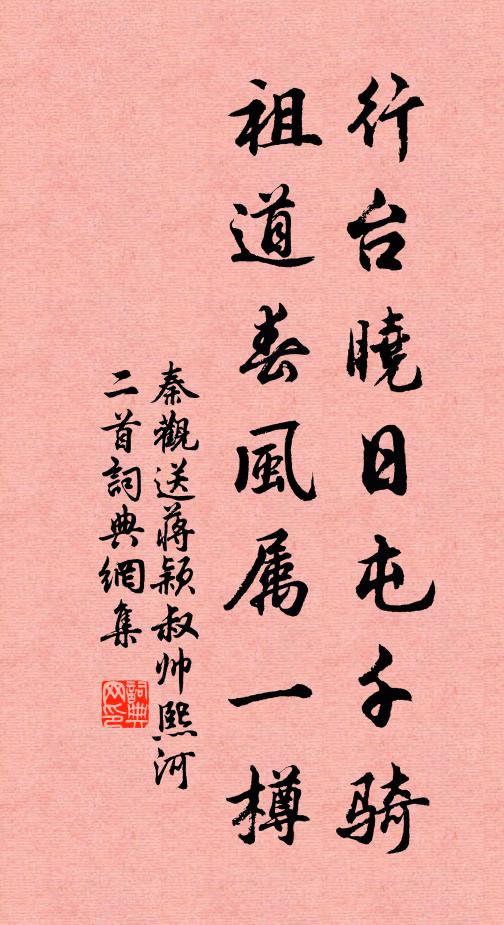 行台曉日屯千骑
祖道春風属一樽
秦觀送蔣颖叔帅熙河
二首詞典網集
詞典
网印